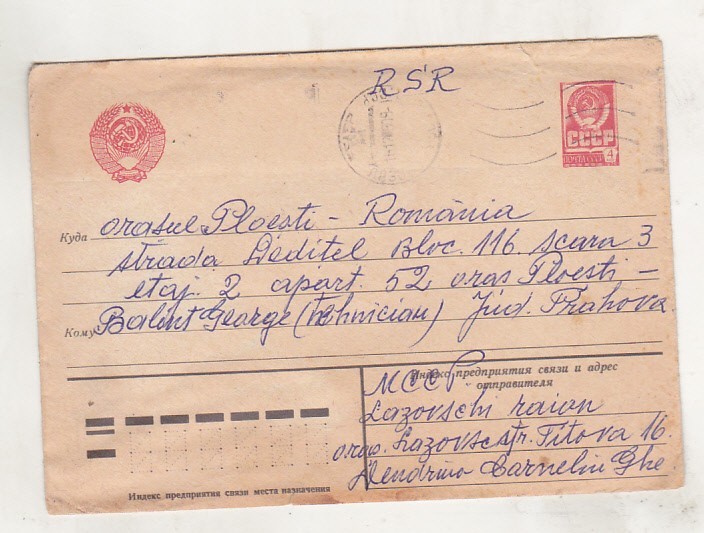 RSR
СССР
ПОЧТА СССР 4
Куда orasul Ploesti – România
strada Deditel Bloc. 116 scara 3
etaj. 2 apart. 52 oras Ploesti –
Кому Balint George (Tehnician) Jud. Prahova
Индекс предприятия связи и адрес
отправителя
МССР
Lazovschi raion
oras. Lazovsc str. Titova 16
Corneliu Ghe
Индекс предприятия связи места назначения